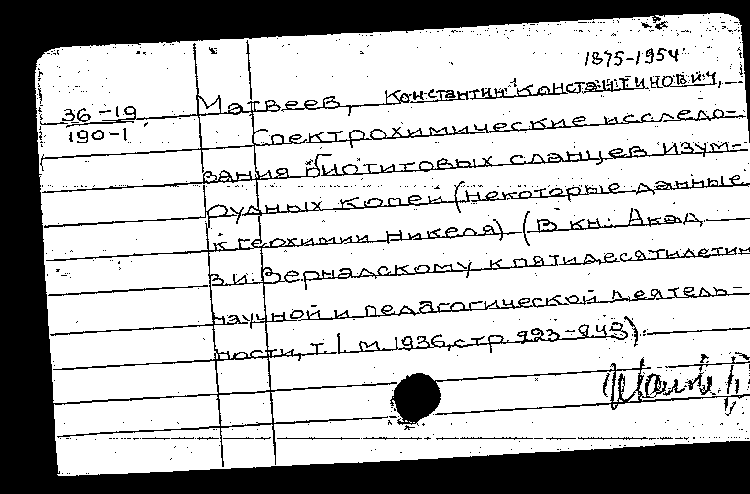 1875-1954
36-19
190-1
Матвеев, Константин Константинович,
Спектрохимические исследо-
вания биотитовых сланцев изум-
рудных копей (некоторые данные
к геохимии никеля) (В кн.: Акад.
В.И. Вернадскому к пятидесятилетию
научной и педагогической деятель-
ности, т. I. М. 1936, стр. 923-943).